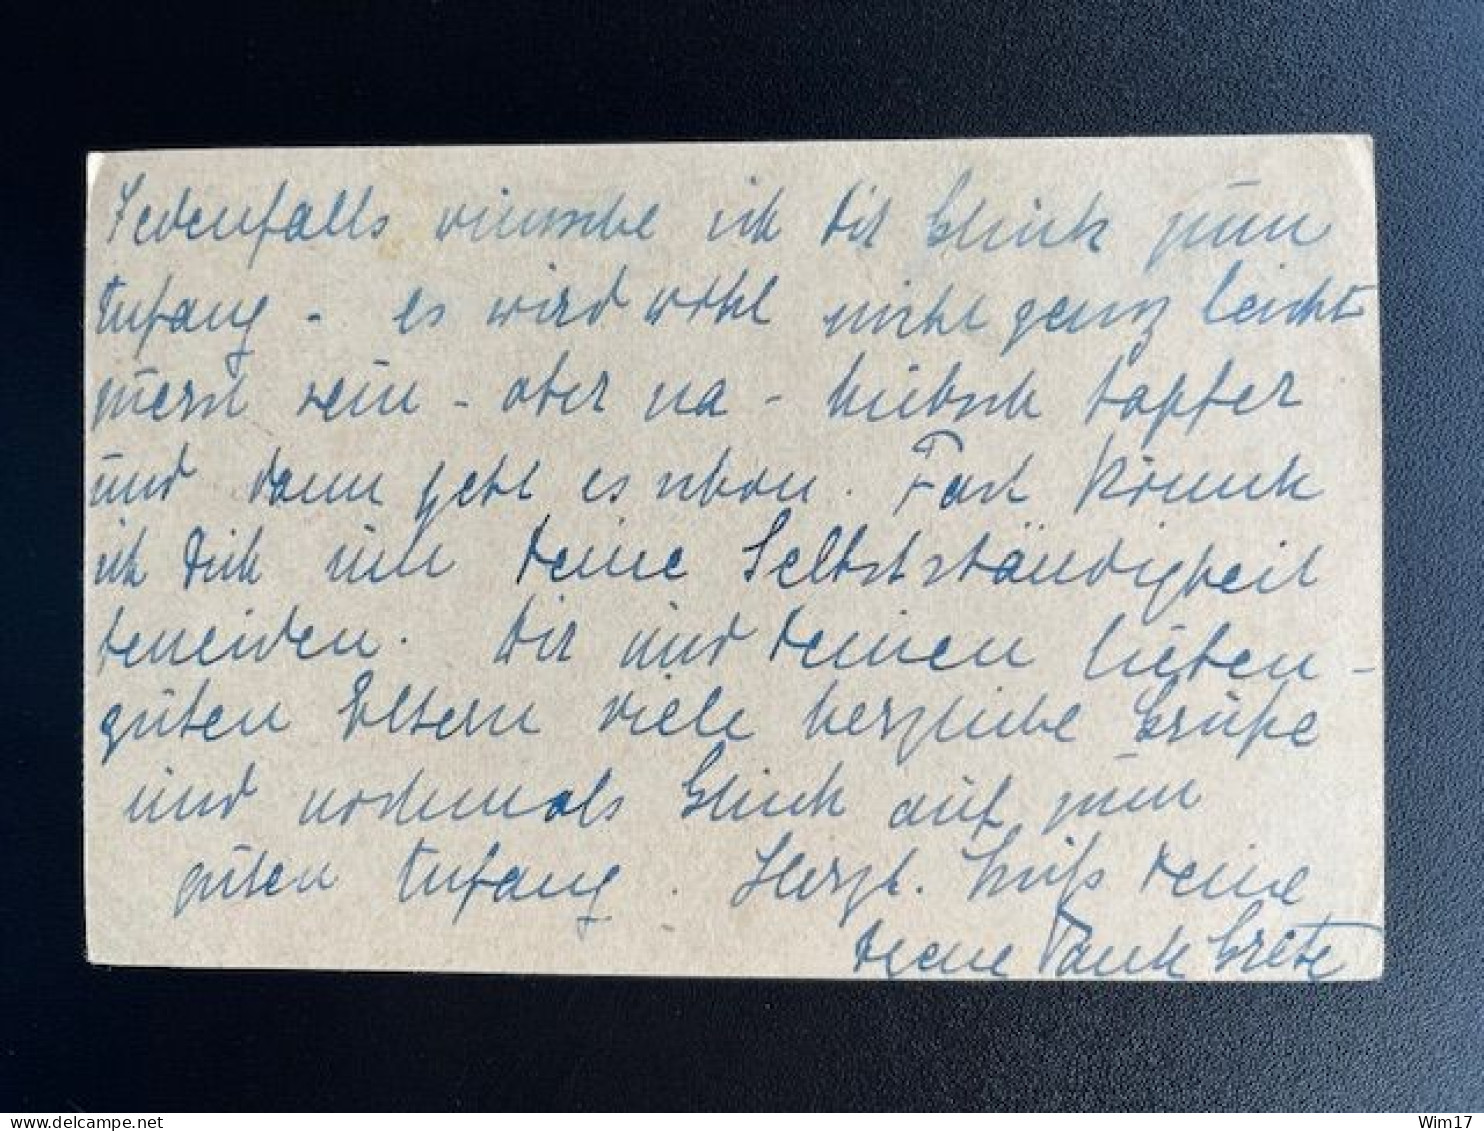 Jedenfalls wünsche ich Dir Glück zum
Anfang - es wird wohl nicht ganz leicht
zuerst sein - aber na - hübsch tapfer
und dann geht es schon. Fast könnte
ich Dich um Deine Selbstständigkeit
beneiden. Dir und Deinen lieben
guten Eltern viele herzliche Grüße
und nochmals Glück auf zum
guten Anfang. Herzl. Gruß Deine
Tante Grete
delcampe.net
Wim17